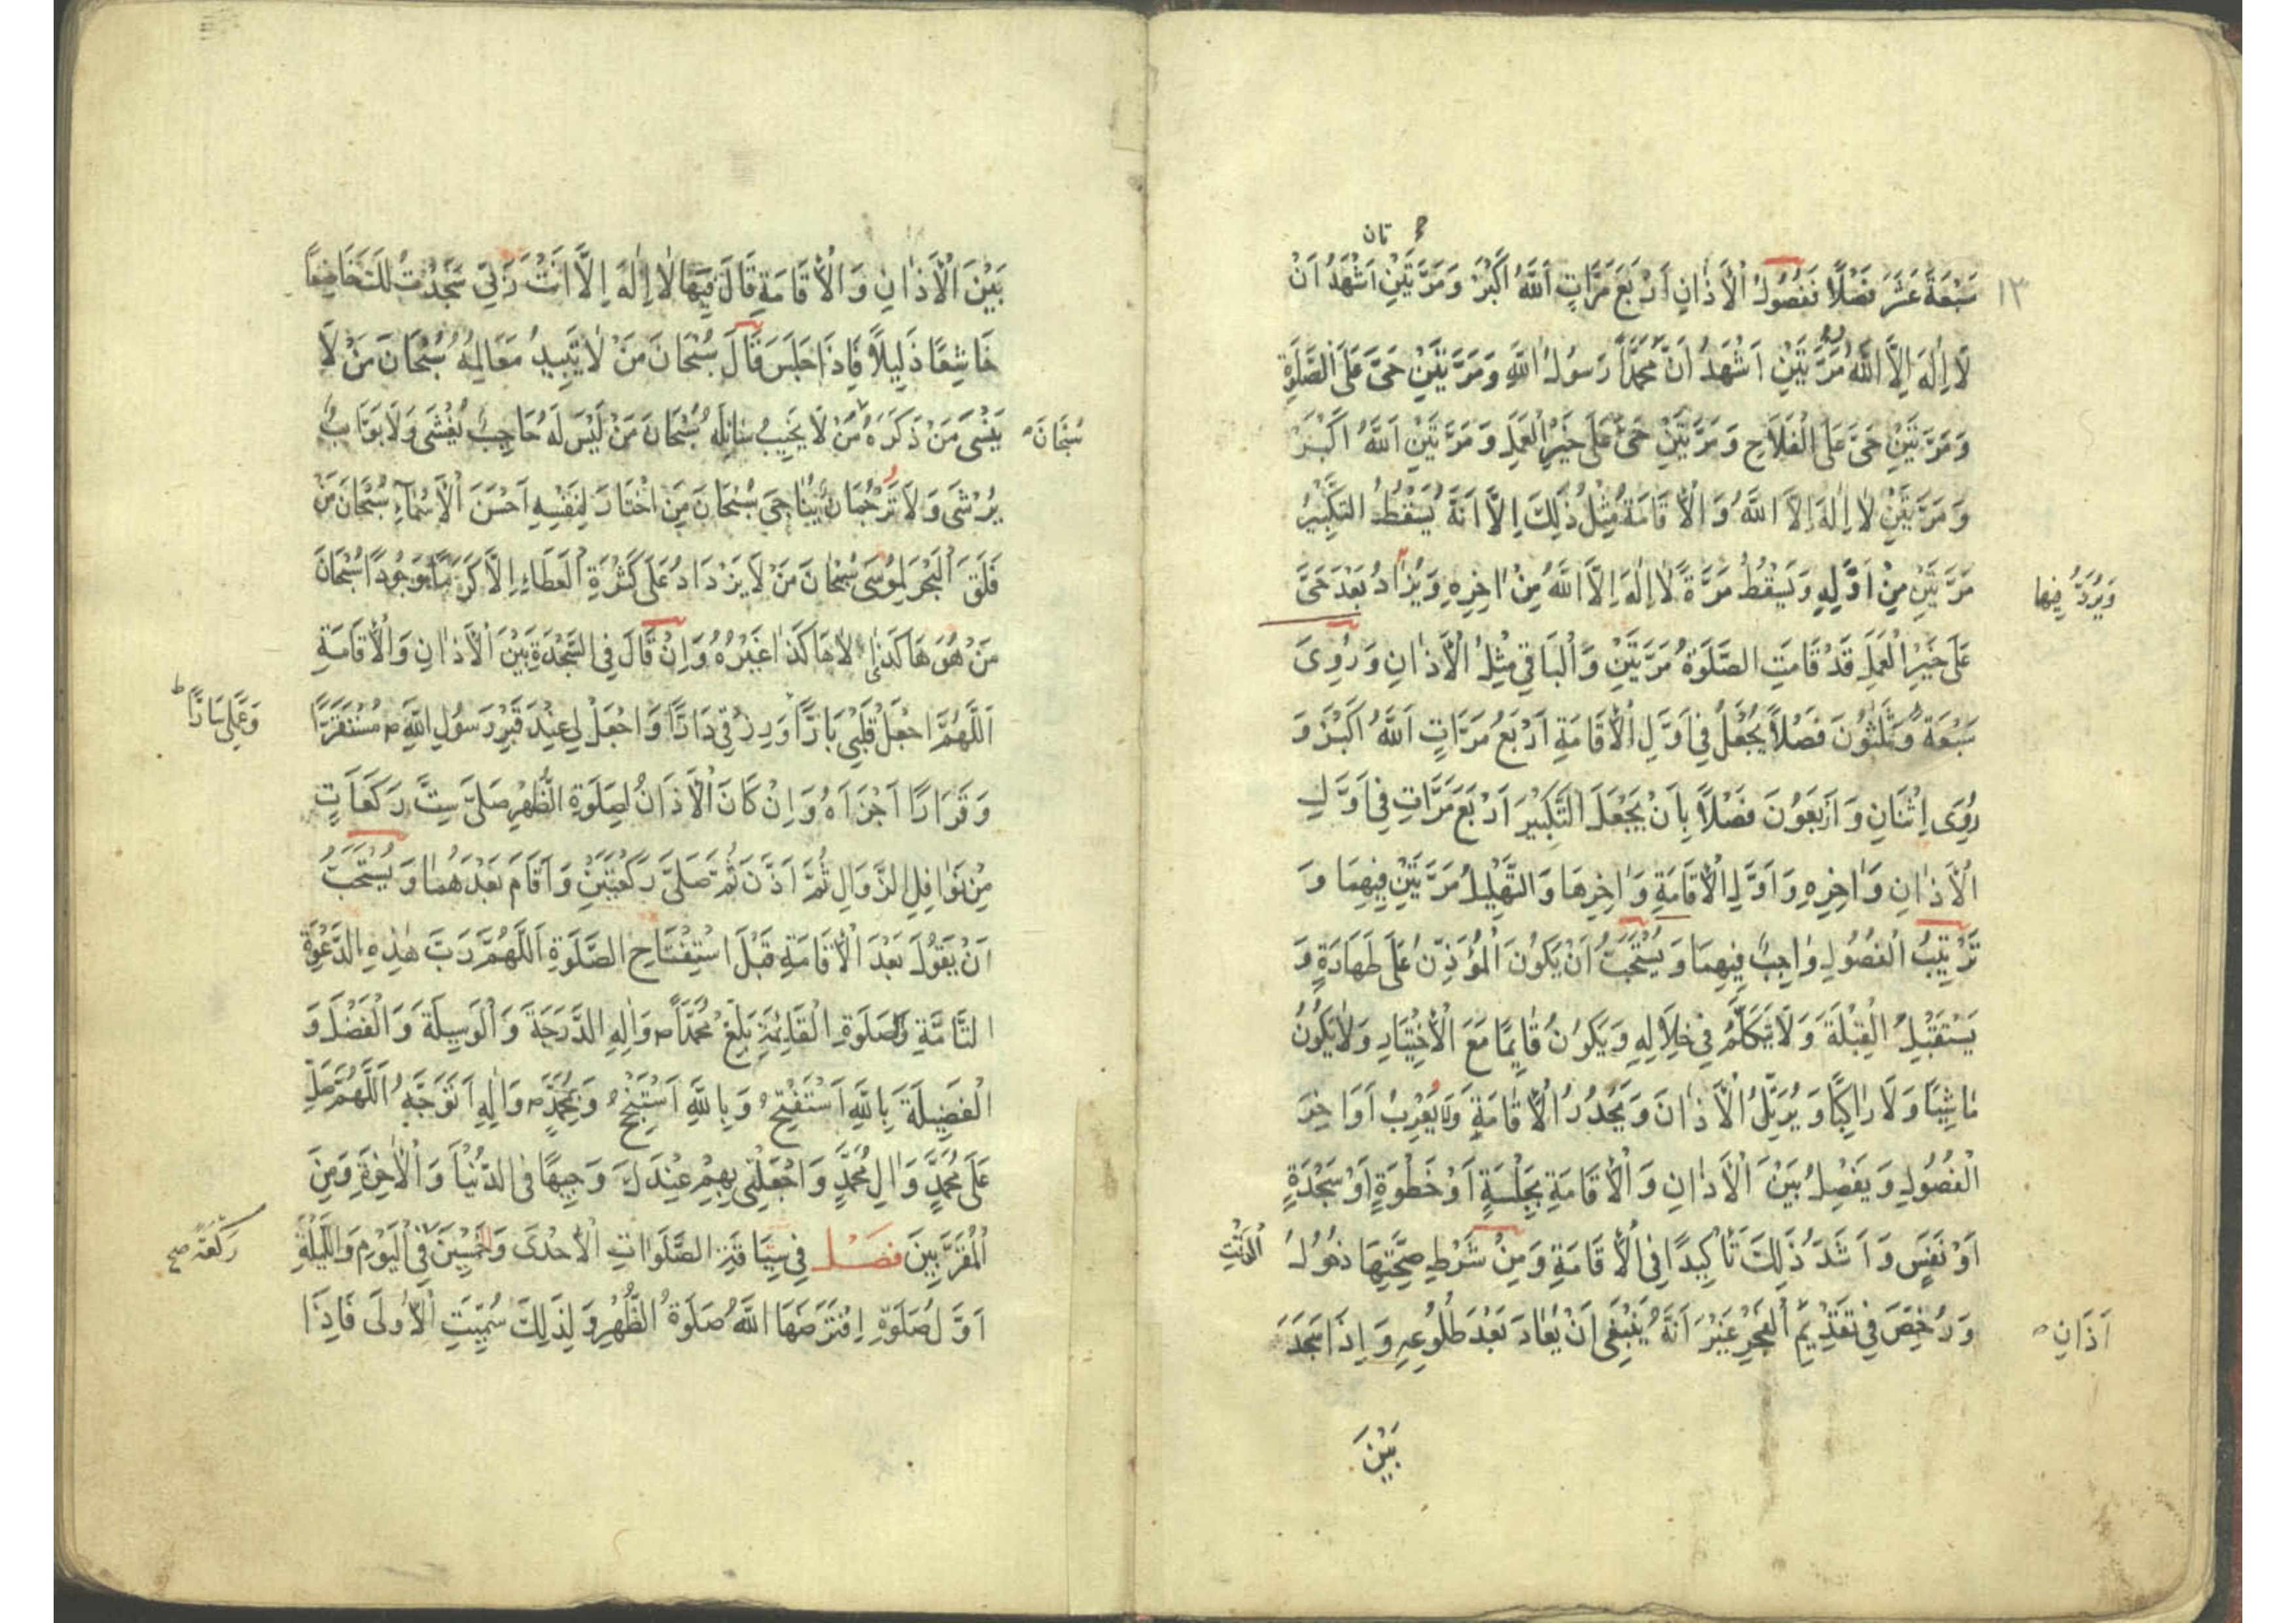 ١٣
تان
سَبْعَةَ عَشَرَ فَصْلًا فَفُصُولُ الْأَذَانِ اَرْبَعَ مَرَّاتٍ اَللهُ اَكْبَرُ وَمَرَّتَيْنِ اَشْهَدُ اَنْ
لَا اِلٰهَ اِلَّا اللهُ وَ مَرَّتَيْنِ اَشْهَدُ اَنَّ مُحَمَّدًا رَسُولُ اللهِ وَمَرَّتَيْنِ حَیَّ عَلَی الصَّلٰوةِ
وَمَرَّتَيْنِ حَیَّ عَلَی الْفَلَاحِ وَمَرَّتَيْنِ حَیَّ عَلٰی خَيْرِ الْعَمَلِ وَمَرَّتَيْنِ اَللهُ اَكْبَرُ
وَمَرَّتَيْنِ لَا اِلٰهَ اِلَّا اللهُ وَالْاِقَامَةُ مِثْلُ ذٰلِكَ اِلَّا اَنَّهُ يَسْقُطُ التَّكْبِيْرُ
مَرَّتَيْنِ مِنْ اَوَّلِهِ وَيَسْقُطُ مَرَّةً لَا اِلٰهَ اِلَّا اللهُ مِنْ اٰخِرِهِ وَيُزَادُ بَعْدَ حَیَّ
وَيُزَدُ فِيهَا
عَلٰی خَيْرِ الْعَمَلِ قَدْ قَامَتِ الصَّلٰوةُ مَرَّتَيْنِ وَالْبَاقِي مِثْلُ الْأَذَانِ وَرُوِیَ
سَبْعَةٌ وَثَلٰثُونَ فَصْلًا يُجْعَلُ فِي اَوَّلِ الْاِقَامَةِ اَرْبَعُ مَرَّاتٍ اَللهُ اَكْبَرُ وَ
رُوِیَ اِثْنَانِ وَاَرْبَعُونَ فَصْلًا بِاَنْ يُجْعَلَ التَّكْبِيْرَ اَرْبَعَ مَرَّاتٍ فِي اَوَّلِ
الْأَذَانِ وَاٰخِرِهِ وَاَوَّلِ الْاِقَامَةِ وَاٰخِرِهَا وَالتَّهْلِيلُ مَرَّتَيْنِ فِيهِمَا وَ
تَرْتِيْبُ الْفُصُولِ وَاجِبٌ فِيهِمَا وَيُسْتَحَبُّ اَنْ يَكُونَ الْمُؤَذِّنُ عَلٰی طَهَارَةٍ وَ
يَسْتَقْبِلُ الْقِبْلَةَ وَلَا يَتَكَلَّمُ فِي خِلَالِهِ وَيَكُونُ قَائِمًا مَعَ الْاِخْتِيَارِ وَلَا يَكُونُ
مَاشِيًا وَلَا رَاكِبًا وَيُرَتِّلُ الْأَذَانَ وَيَحْدُرُ الْاِقَامَةِ وَلَا يُعْرِبُ اَوَاخِرَ
الْفُصُولِ وَيَفْصِلُ بَيْنَ الْأَذَانِ وَالْاِقَامَةِ بِجِلْسَةٍ اَوْ خَطْوَةٍ اَوْ سَجْدَةٍ
اَوْ نَفَسٍ وَاَشَدُّ ذٰلِكَ تَأْكِيدًا فِي الْاِقَامَةِ وَمِنْ شَرْطِ صِحَّتِهَا دُخُولُ الْوَقْتِ
وَرُخِّصَ فِي تَقْدِيْمِ الْفَجْرِ غَيْرَ اَنَّهُ يَنْبَغِي اَنْ يُعَادَ بَعْدَ طُلُوعِهِ وَاِذَا سَجَدَ
اَذَانِ
بَيْنَ
بَيْنَ الْأَذَانِ وَالْاِقَامَةِ قَالَ فِيهَا لَا اِلٰهَ اِلَّا اَنْتَ رَبِّي سَجَدْتُ لَكَ خَاضِعًا
خَاشِعًا ذَلِيلًا فَاِذَا جَلَسَ قَالَ سُبْحَانَ مَنْ لَا تَبِيدُ مَعَالِمُهُ سُبْحَانَ مَنْ لَا
يَنْسٰی مَنْ ذَكَرَهُ مَنْ لَا يَخِيبُ سَائِلُهُ سُبْحَانَ مَنْ لَيْسَ لَهُ حَاجِبٌ يُغْشٰی وَلَا بَوَّابٌ
سُبْحَانَ
يُرْشٰی وَلَا تَرْجُمَانٌ يُنَاجٰی سُبْحَانَ مَنِ اخْتَارَ لِنَفْسِهِ اَحْسَنَ الْأَسْمَآءِ سُبْحَانَ مَنْ
فَلَقَ الْبَحْرَ لِمُوسٰی سُبْحَانَ مَنْ لَا يَزْدَادُ عَلٰی كَثْرَةِ الْعَطَاءِ اِلَّا كَرَمًا وَجُودًا سُبْحَانَ
مَنْ هُوَ هَاكَذَا لَا هَاكَذَا غَيْرُهُ وَاِنْ قَالَ فِي السَّجْدَةِ بَيْنَ الْأَذَانِ وَالْاِقَامَةِ
اَللّٰهُمَّ اجْعَلْ قَلْبِي بَارًّا وَرِزْقِي دَارًّا وَاجْعَلْ لِي عِنْدَ قَبْرِ رَسُولِ اللهِ ص مُسْتَقَرًّا
وَعَمَلِي سَارًّا ط
وَقَرَارًا اَجْزَاَهُ وَاِنْ كَانَ الْأَذَانُ لِصَلٰوةِ الظُّهْرِ صَلّٰی سِتَّ رَكَعَاتٍ
مِنْ نَوَافِلِ الزَّوَالِ ثُمَّ اَذَّنَ ثُمَّ صَلّٰی رَكْعَتَيْنِ وَاَقَامَ بَعْدَهُمَا وَيُسْتَحَبُّ
اَنْ يَقُولَ بَعْدَ الْاِقَامَةِ قَبْلَ اسْتِفْتَاحِ الصَّلٰوةِ اَللّٰهُمَّ رَبَّ هٰذِهِ الدَّعْوَةِ
التَّامَّةِ وَالصَّلٰوةِ الْقَائِمَةِ بَلِّغْ مُحَمَّدًا ص وَاٰلِهِ الدَّرَجَةَ وَالْوَسِيلَةَ وَالْفَضْلَ وَ
الْفَضِيلَةَ بِاللهِ اَسْتَفْتِحُ وَبِاللهِ اَسْتَنْجِحُ وَبِمُحَمَّدٍ ص وَاٰلِهِ اَتَوَجَّهُ اَللّٰهُمَّ صَلِّ
عَلٰی مُحَمَّدٍ وَاٰلِ مُحَمَّدٍ وَاجْعَلْنِي بِهِمْ عِنْدَكَ وَجِيهًا فِي الدُّنْيَا وَالْاٰخِرَةِ وَمِنَ
الْمُقَرَّبِينَ فَصْل فِي سِيَاقَةِ الصَّلَوَاتِ الْاِحْدٰی وَالْخَمْسِيْنَ فِي الْيَوْمِ وَاللَّيْلَةِ
رَكْعَة صح
اَوَّلُ صَلٰوةٍ اِفْتَرَضَهَا اللهُ صَلٰوةُ الظُّهْرِ وَلِذٰلِكَ سُمِّيَتِ الْاُوْلٰی فَاِذَا